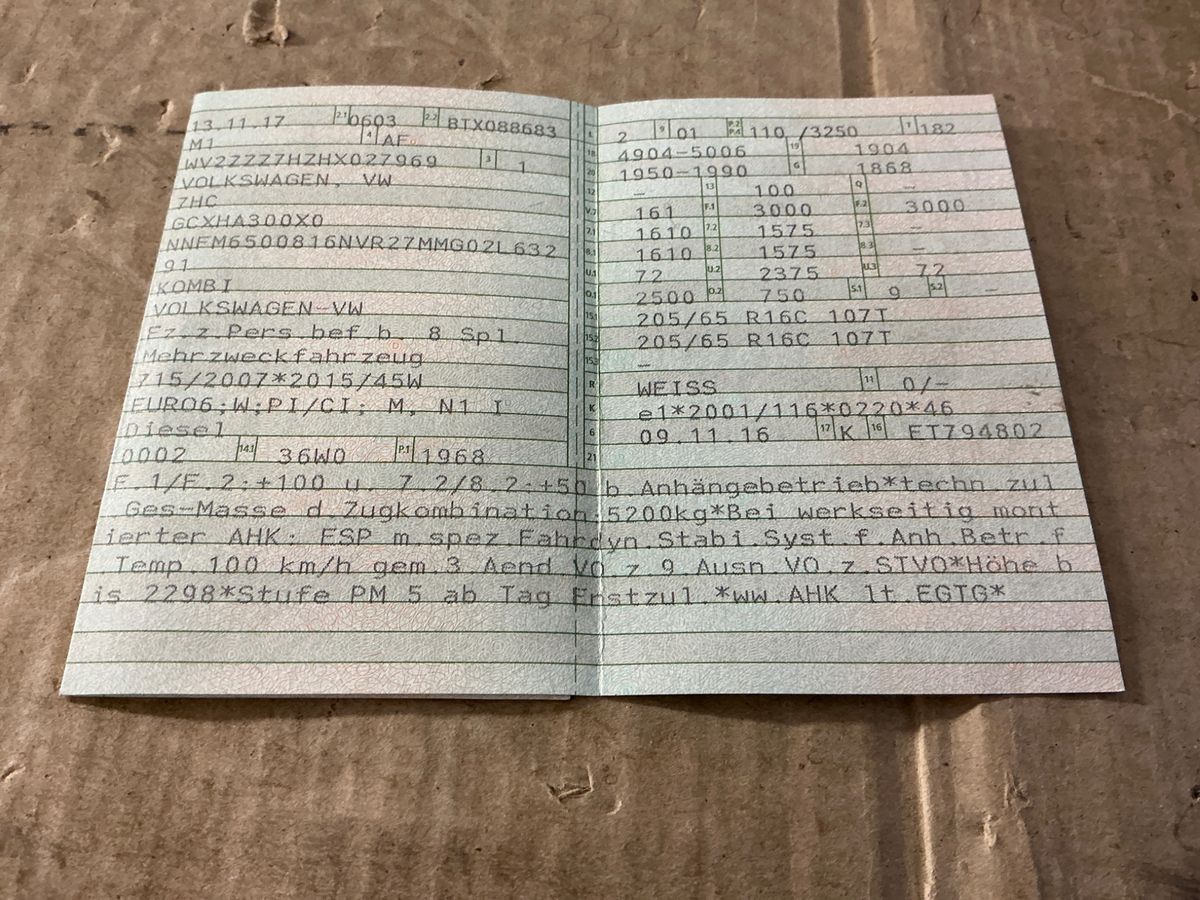 13.11.17 2.1 0603 2.2 BTX088683
M1 4 AF
WV2ZZZ7HZHX027969 3 1
VOLKSWAGEN, VW
7HC
GCXHA300X0
NNFM6500816NVR27MMG02L632
91
KOMBI
VOLKSWAGEN-VW
Fz.z.Pers.bef.b. 8 Spl.
Mehrzweckfahrzeug
715/2007*2015/45W
EURO6;W;PI/CI; M, N1 I
Diesel
0002 14.1 36W0 P.1 1968
L 2 9 01 P.2 P.4 110 /3250 T 182
18 4904-5006 19 1904
20 1950-1990 G 1868
12 – 13 100 Q –
V.7 161 F.1 3000 F.2 3000
7.1 1610 7.2 1575 7.3 –
8.1 1610 8.2 1575 8.3 –
U.1 72 U.2 2375 U.3 72
O.1 2500 O.2 750 S.1 9 S.2 –
15.1 205/65 R16C 107T
15.2 205/65 R16C 107T
15.3 –
R WEISS 11 0/-
K e1*2001/116*0220*46
6 09.11.16 17 K 16 ET794802
21
F.1/F.2:+100 u. 7.2/8.2:+50 b.Anhängebetrieb*techn.zul
.Ges-Masse d.Zugkombination 5200kg*Bei werkseitig mont
ierter AHK: ESP m.spez.Fahrdyn.Stabi.Syst.f.Anh.Betr.f
.Temp.100 km/h gem.3.Aend.VO.z.9.Ausn.VO.z.STVO*Höhe b
is 2298*Stufe PM 5 ab Tag Erstzul.*ww.AHK lt.EGTG*